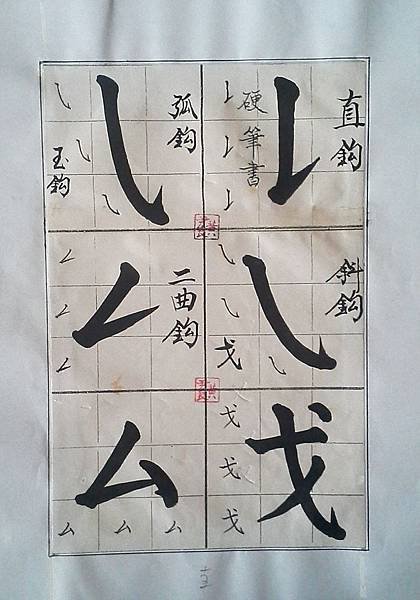 直鈎
硬筆書
斜鈎
戈
戈
戈
戈
戈
弧鈎
玉鈎
二曲鈎
厶
厶
厶
厶